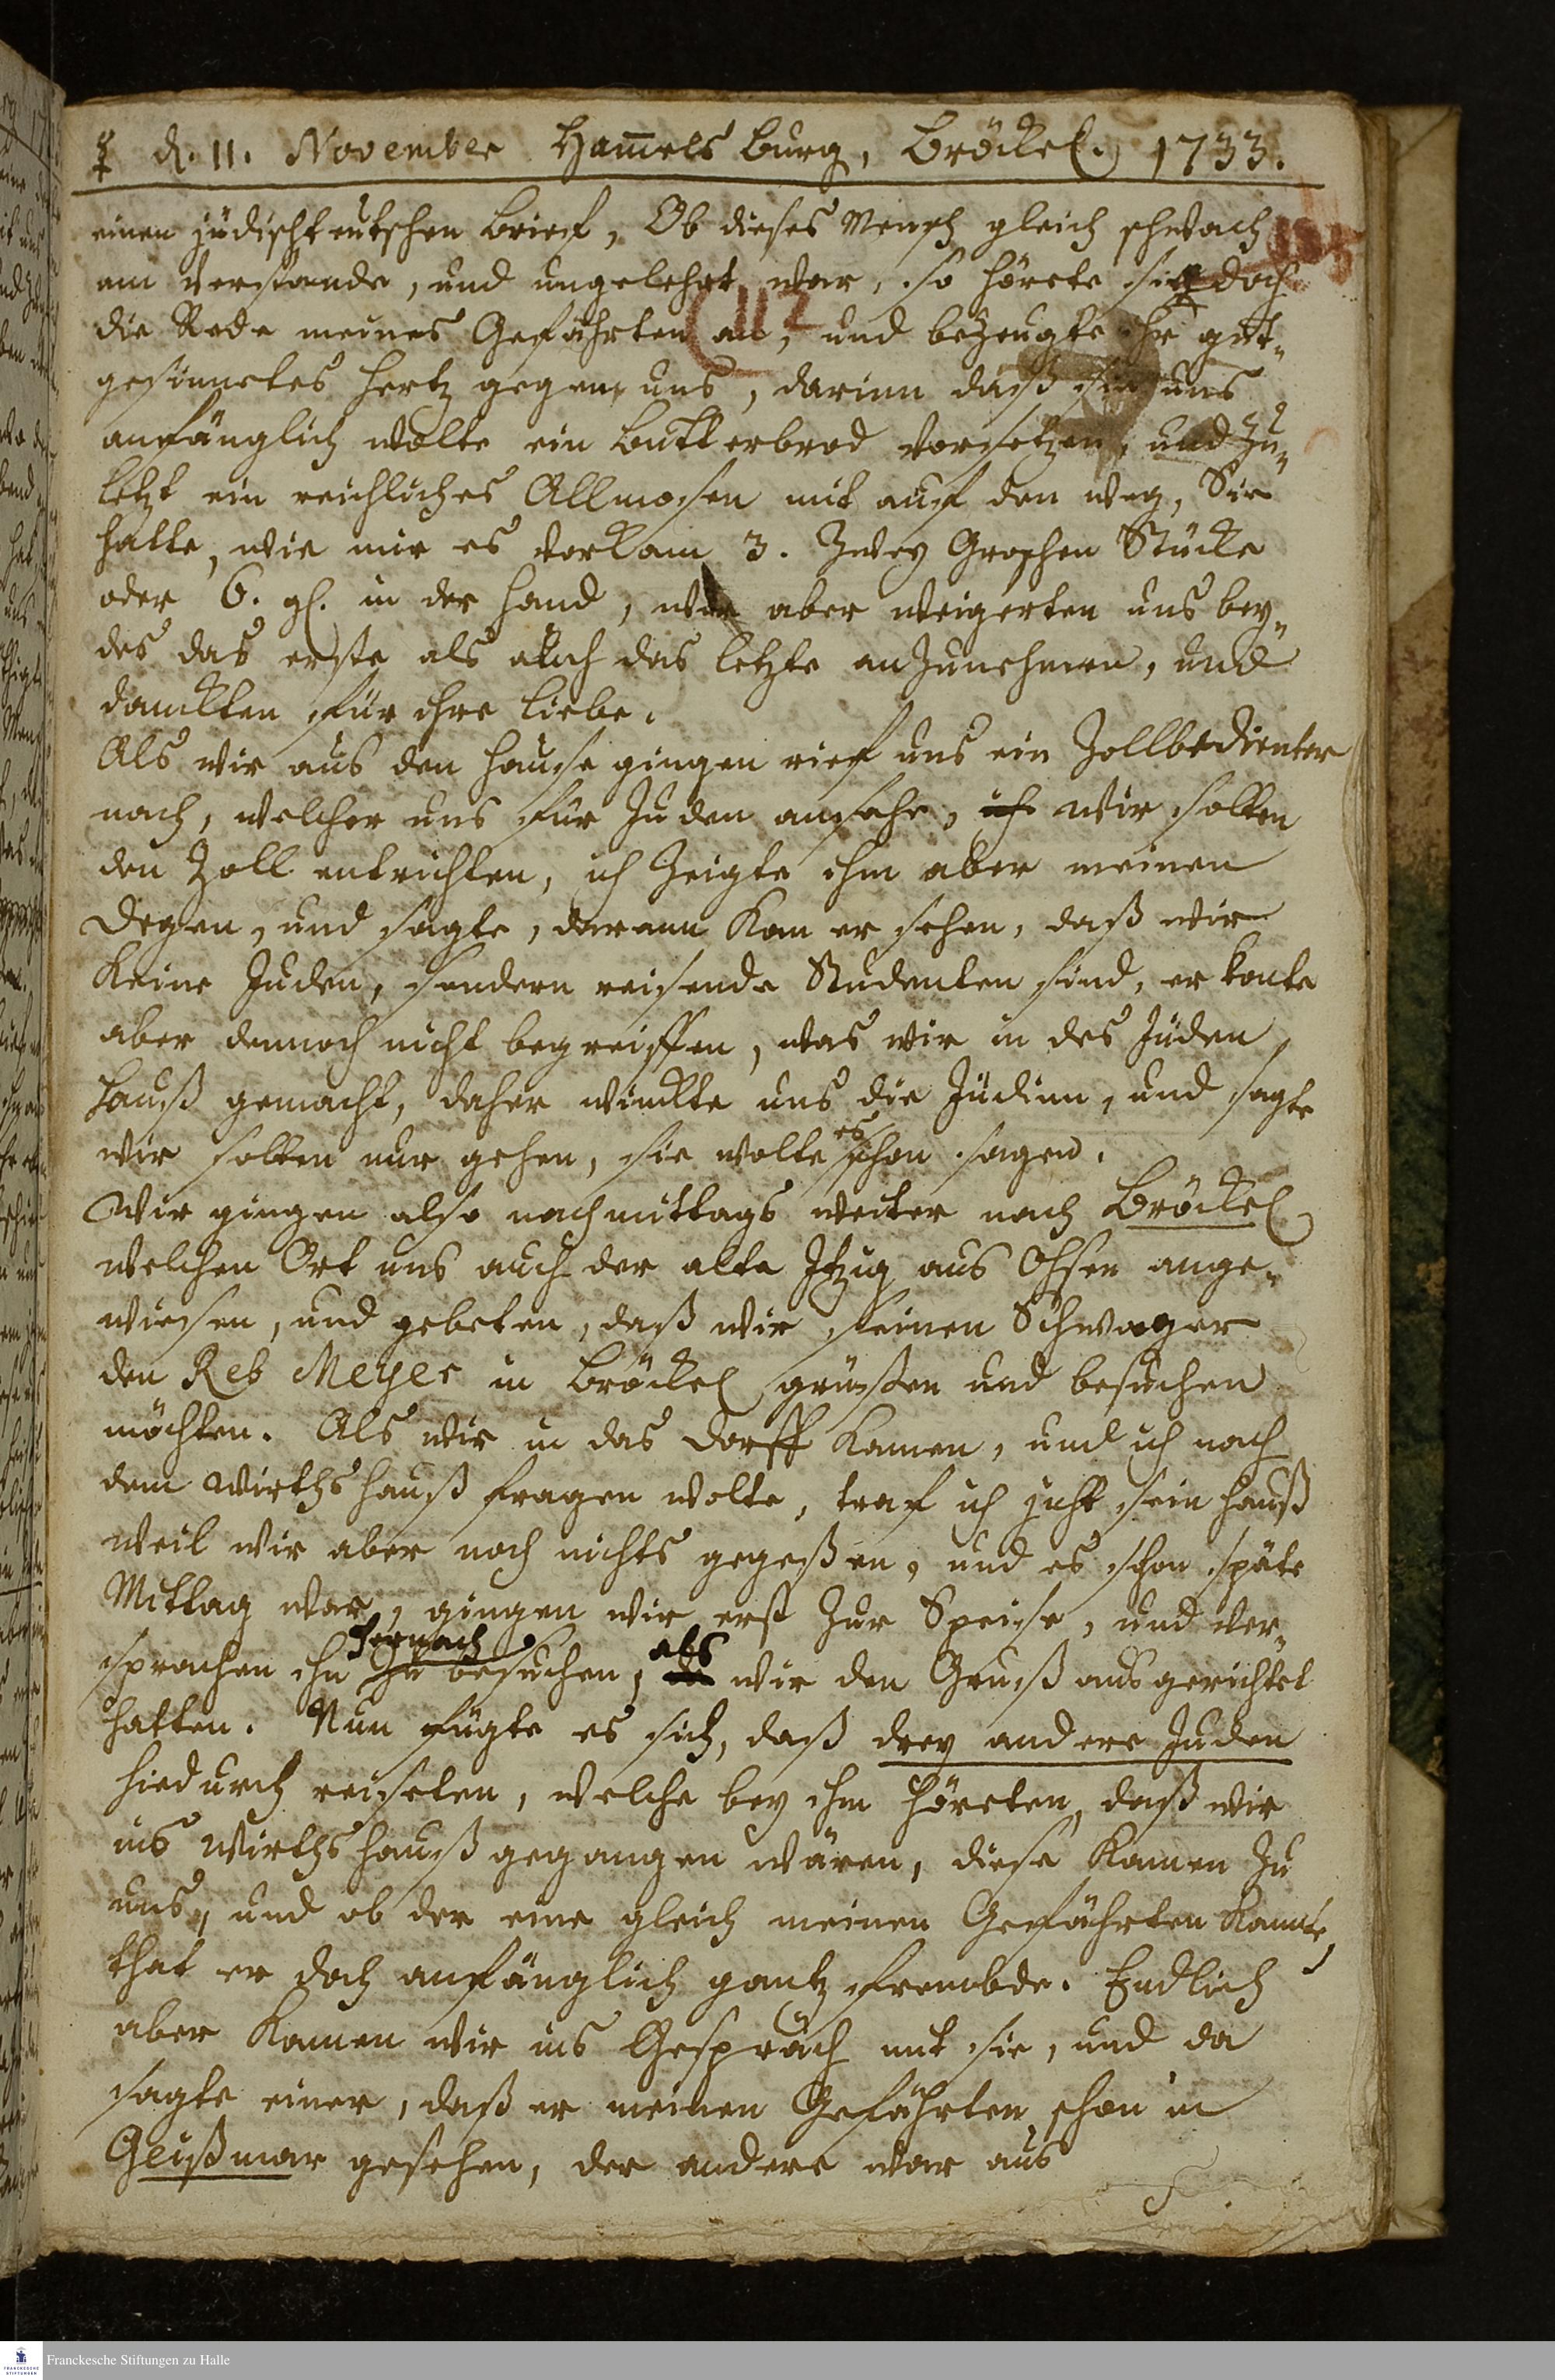 ☿ d. 11. November Ham̅elsburg, Bröckel. 1733.
einen jüdischteutschen Brief, Ob dieses Mensch gleich schwach
am Verstande, und ungelehrt war, so hörete sie doch
112
die Rede meines Gefährten an, und bezeugte ihr gut-
gesinnetes Hertz gegen uns, darinn daß sie uns
anfänglich wolte ein Butterbrod vorsetzen, und zu-
letzt ein reichliches Allmosen mit auf den weg, Sie
hatte, wie mir es vorkam 3. Zwey Groschen Stücke
oder 6. gl. in der Hand, wir aber weigerten uns bey-
des das erste als auch das letzte anzunehmen, und
danckten für ihre Liebe.
Als wir aus den Hause gingen rief uns ein Zollbedienter
nach, welcher uns für Juden ansahe, ich wir solten
den Zoll entrichten, ich Zeigte ihm aber meinen
Degen, und sagte, darann Kan er sehen, daß wir
Keine Juden, sondern reisende Studenten sind, er konte
aber dennoch nicht begreiffen, was wir in des Juden
Hauß gemacht, daher winckte uns die Jüdinn, und sagte
wir solten nur gehen, sie wolte es schon sagen.
Wir gingen also nachmittags weiter nach Bröckel,
welchen Ort uns auch der alte Itzig aus Ohsen ange-
wiesen, und gebeten, daß wir seinen Schwager
den Reb Meyer in Bröckel grüßen und besuchen
möchten. Als wir in das Dorff Kamen, und ich nach
dem Wirthshauß fragen wolte, traf ich just sein Hauß
weil wir aber noch nichts gegeßen, und es schon späte
Mittag war, gingen wir erst zur Speise, und ver-
sprachen ihn hernach zu besuchen, als da wir den Gruß ausgerichtet
hatten. Nun fügte es sich, daß drey andere Juden
hiedurch reiseten, welche bey ihm höreten, daß wir
ins Wirthshauß gegangen wären, diese Kamen zu
uns, und ob der eine gleich meinen Gefährten Kannte,
that er doch anfänglich gantz frembde. Endlich
aber Kamen wir ins Gespräch mit sie, und da
sagte einer, daß er meinen Gefährten schon in
Geißmar gesehen, der andere war aus
Franckesche Stiftungen zu Halle